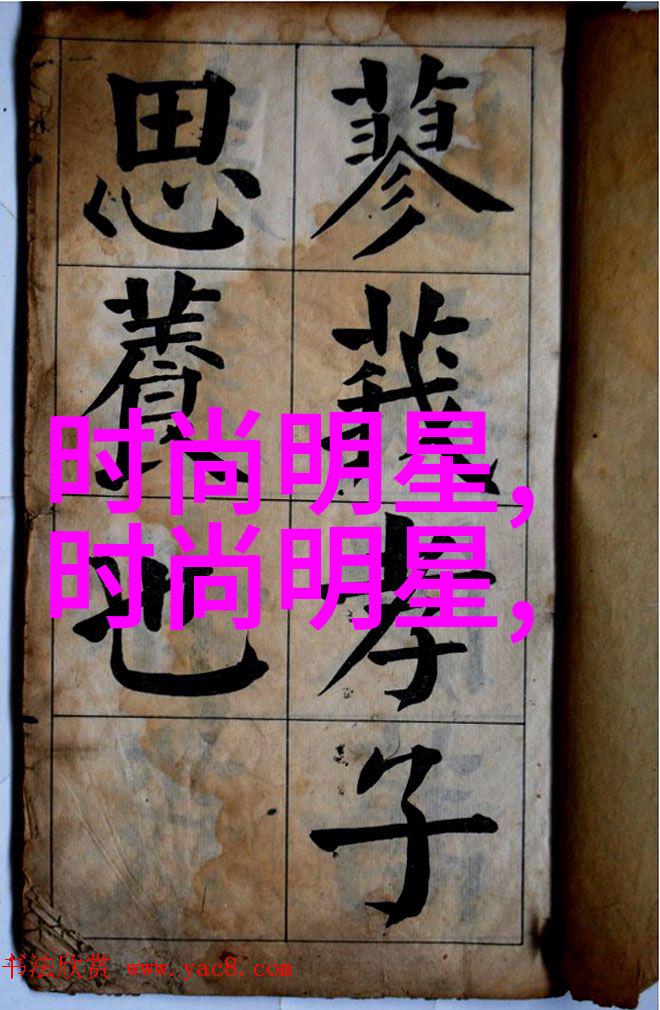 蓼莪孝子
思養也
时尚明星,
时尚明星,
书法欣赏 www.yac8.com